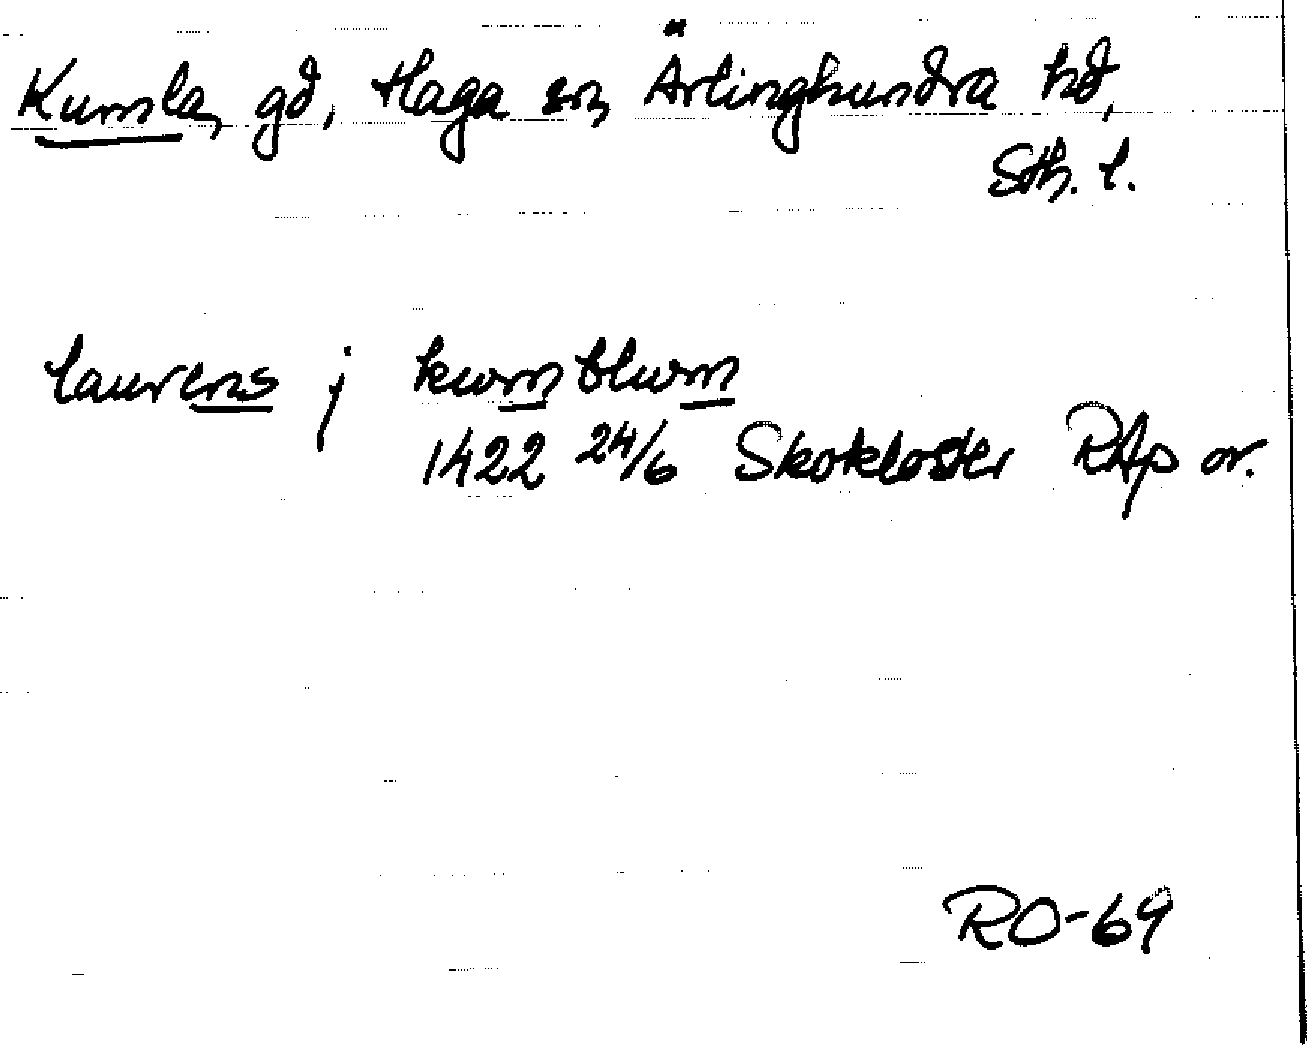 Kumla, gd, Haga sn, Ärlinghundra hd,
Sth. l.
laurens j kumblum
1422 24/6 Skokloster RAp or.
RO-69